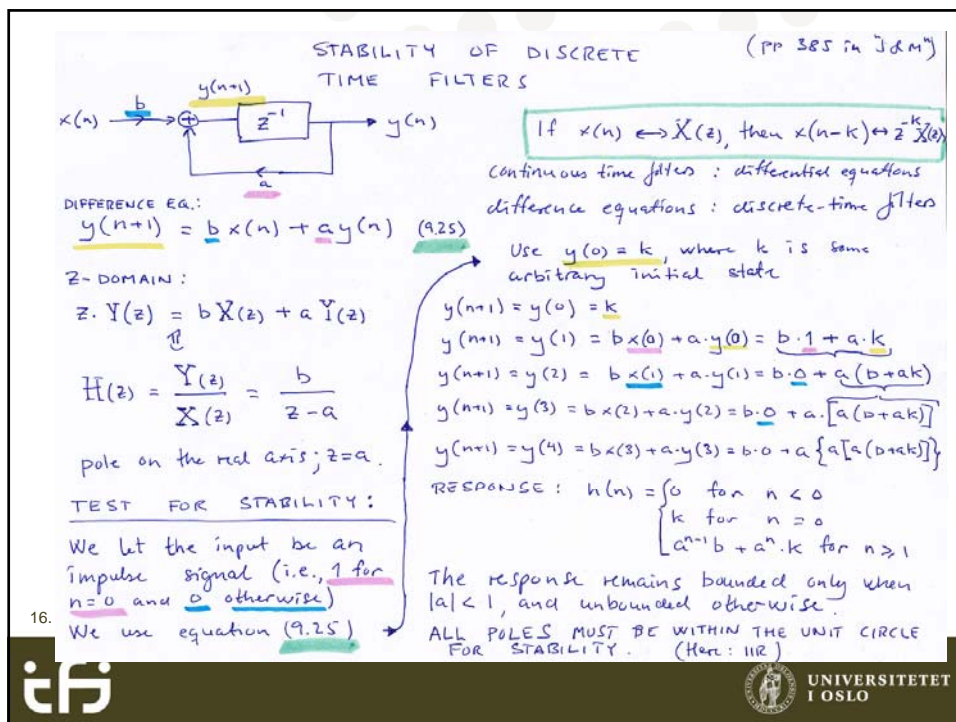 STABILITY OF DISCRETE
TIME FILTERS
(PP 385 in "J&M")
y(n+1)
x(n)
b
z⁻¹
y(n)
a
DIFFERENCE EQ.:
y(n+1) = b x(n) + a y(n) (9.25)
Z-DOMAIN:
z· Y(z) = b X(z) + a Y(z)
⇕
H(z) = Y(z) / X(z) = b / (z-a)
pole on the real axis; z=a.
TEST FOR STABILITY:
We let the input be an
impulse signal (i.e., 1 for
n=0 and 0 otherwise)
We use equation (9.25)
If x(n) ⟷ X(z), then x(n-k) ↔ z⁻ᵏ X(z)
continuous time filters : differential equations
difference equations : discrete-time filters
Use y(0) = k, where k is some
arbitrary initial state
y(n+1) = y(0) = k
y(n+1) = y(1) = b x(0) + a·y(0) = b·1 + a·k
y(n+1) = y(2) = b x(1) + a·y(1) = b·0 + a(b+ak)
y(n+1) = y(3) = b x(2) + a·y(2) = b·0 + a·[a(b+ak)]
y(n+1) = y(4) = b x(3) + a·y(3) = b·0 + a{a[a(b+ak)]}
RESPONSE: h(n) = { 0 for n < 0
k for n = 0
aⁿ⁻¹b + aⁿ·k for n ≥ 1
The response remains bounded only when
|a| < 1, and unbounded otherwise.
ALL POLES MUST BE WITHIN THE UNIT CIRCLE
FOR STABILITY. (Here: IIR)
16.
ifi
UNIVERSITETET
I OSLO